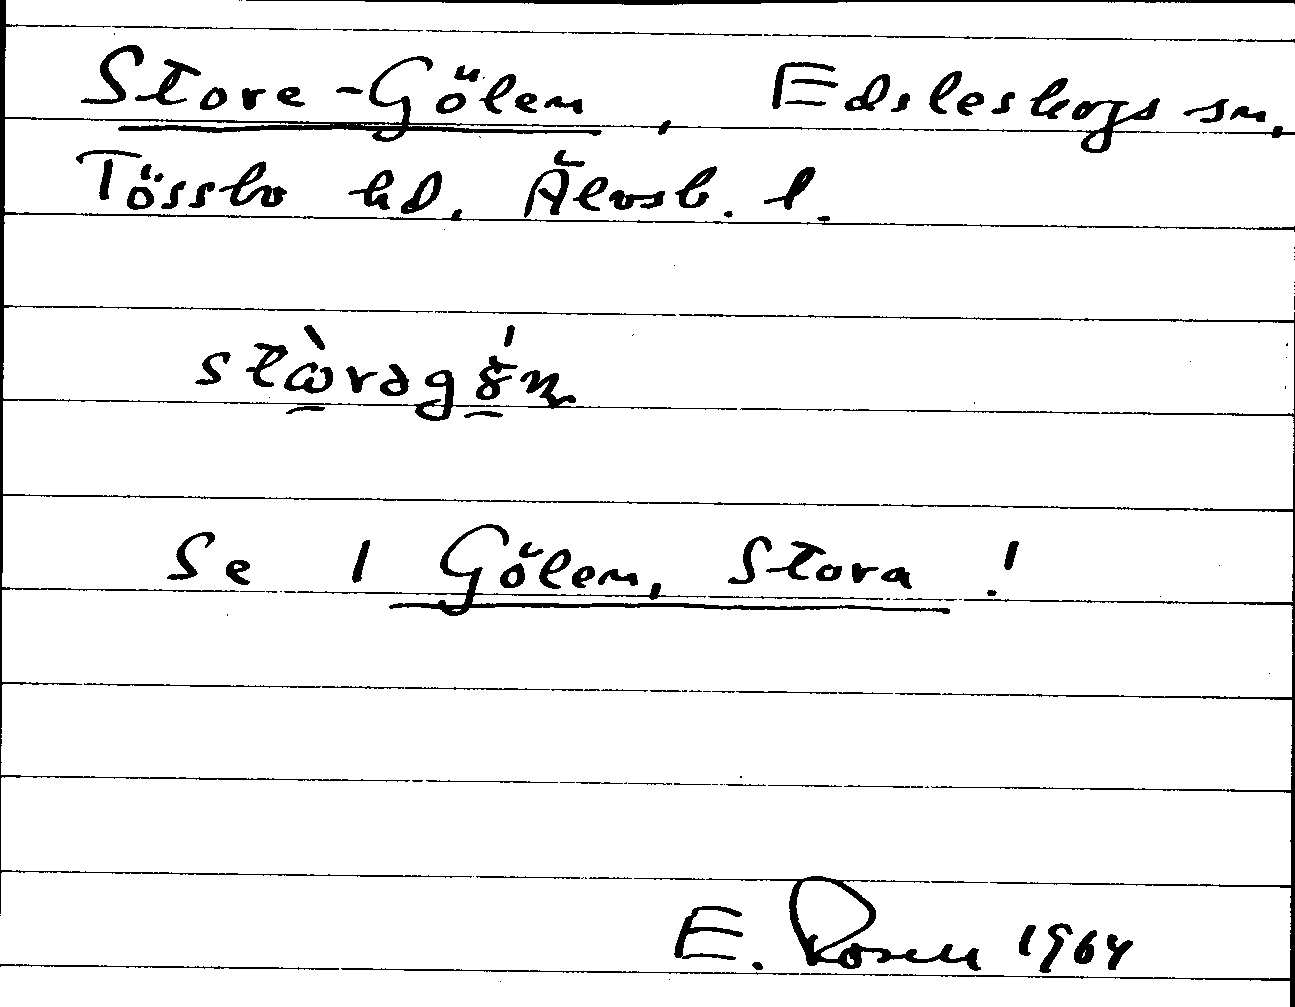 Store-Gölen, Edsleskogs sn,
Tössbo hd. Älvsb. l.
Se 1 Gölen, Stora!
E. Rosell 1964